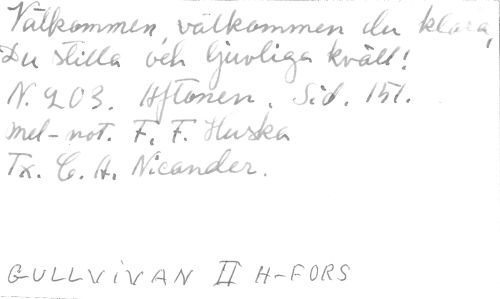 Välkommen, välkommen du klara,
Du stilla och ljuvliga kväll!
N. 203. Aftonen. Sid. 151.
mel-not. F. F. Huska
Tx. C. A. Nicander.
GULLVIVAN II H-FORS